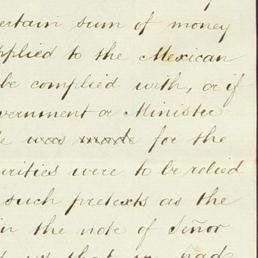 ertain sum of money
pplied to the Mexican
be complied with, or if
vernment or Minister
e was made for the
urities were to be relied
such pretexts as the
in the note of Señor